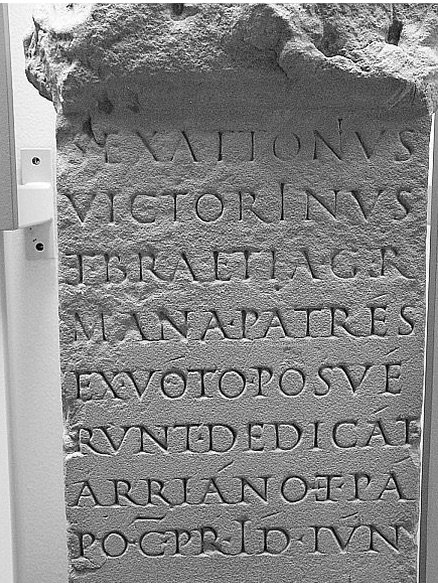 SEXATTONIVS
VICTORINVS
ETBRAETIAGER
MANA·PATRÉS
EX·VÓTO·PÓSVÉ
RVNT·DEDICÁT
ARRIÁNO·ET·PA
PO·C̄·PR·ÍD·IVN